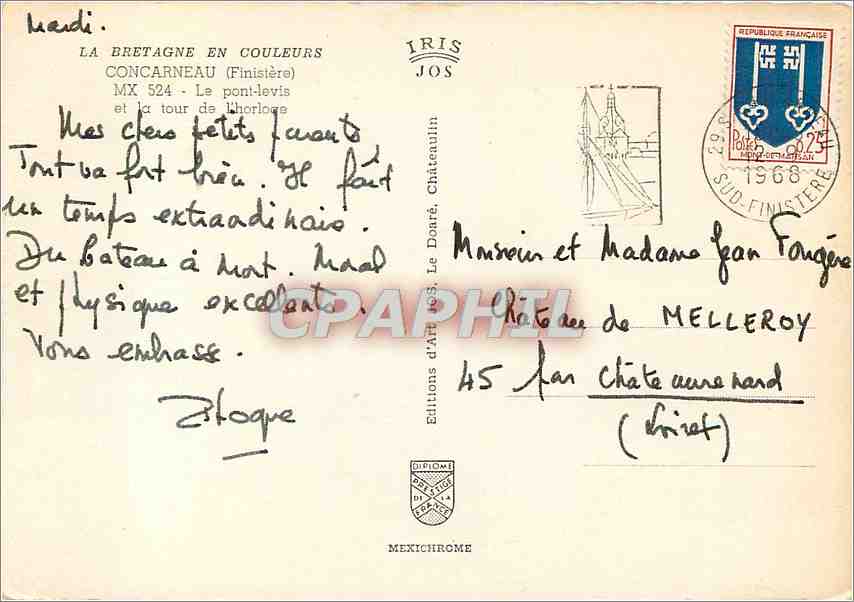 Mardi.
LA BRETAGNE EN COULEURS
CONCARNEAU (Finistère)
MX 524 - Le pont-levis
et la tour de l'horloge
Mes chers petits parents
Tout va fort bien. Il fait
un temps extraordinaire.
Du bateau à mort. Moral
et physique excellents.
Vous embrasse.
IRIS
JOS
Editions d'Art JOS, Le Doaré, Châteaulin
DIPLOME
PRESTIGE
DE LA
FRANCE
MEXICHROME
REPUBLIQUE FRANÇAISE
Postes 0,25
MONT-DE-MARSAN
1968
SUD-FINISTERE
Monsieur et Madame Jean Fougère
Château de MELLEROY
45 par Châteaurenard
(Loiret)
CPAPHIL